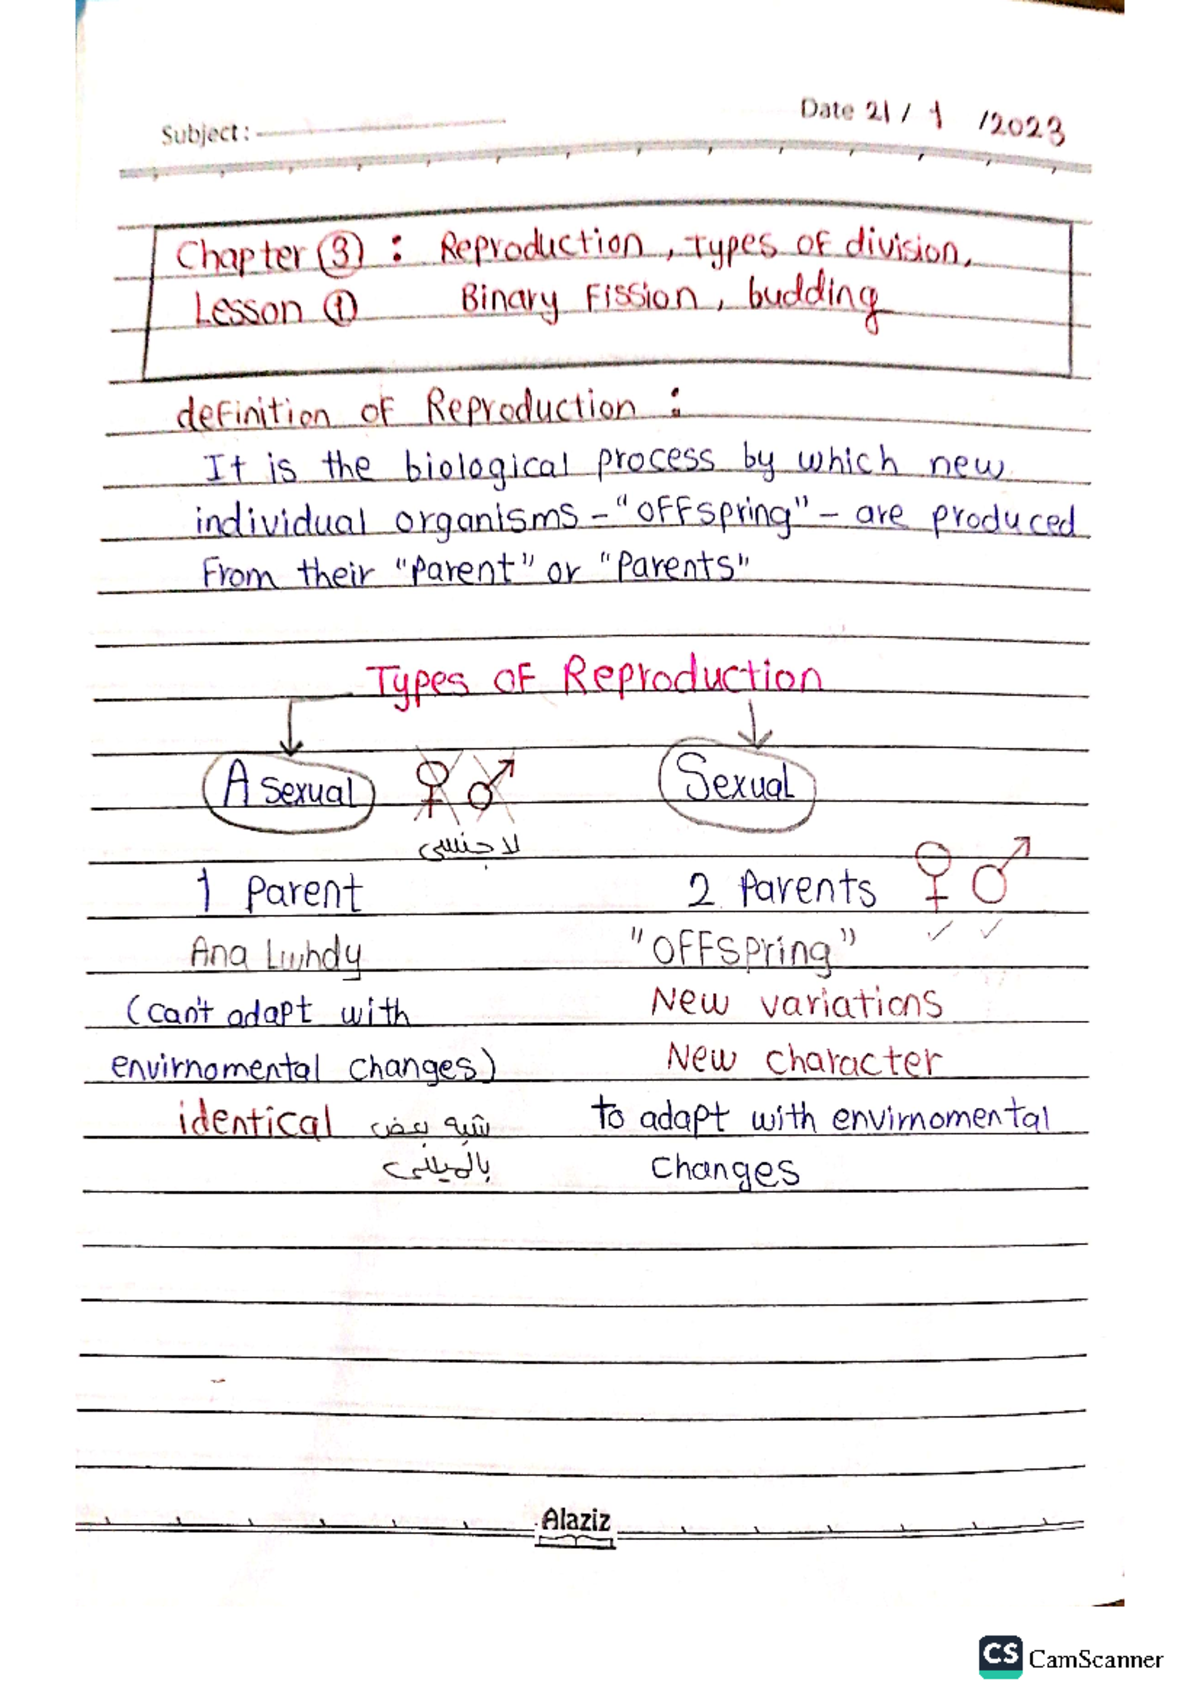 Subject :
Date 21 / 1 /2023
Chapter ③ : Reproduction, Types of division,
Lesson ① Binary Fission, budding
definition of Reproduction :
It is the biological process by which new
individual organisms - "offspring" - are produced
From their "Parent" or "Parents"
Types of Reproduction
A sexual ♀ ♂ Sexual
لا جنسى
1 Parent 2 Parents ♀ ♂
Ana Lwhdy "OFFspring"
(can't adapt with New variations
envirnomental changes) New character
identical شبه بعض to adapt with envirnomental
بالميلى changes
Alaziz
CS CamScanner